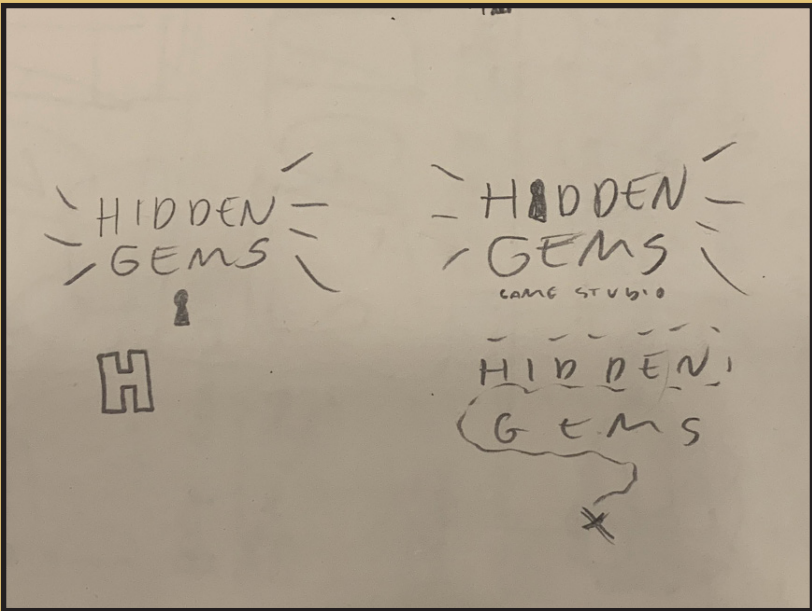 HIDDEN
GEMS
H
HIDDEN
GEMS
GAME STUDIO
HIDDEN
GEMS